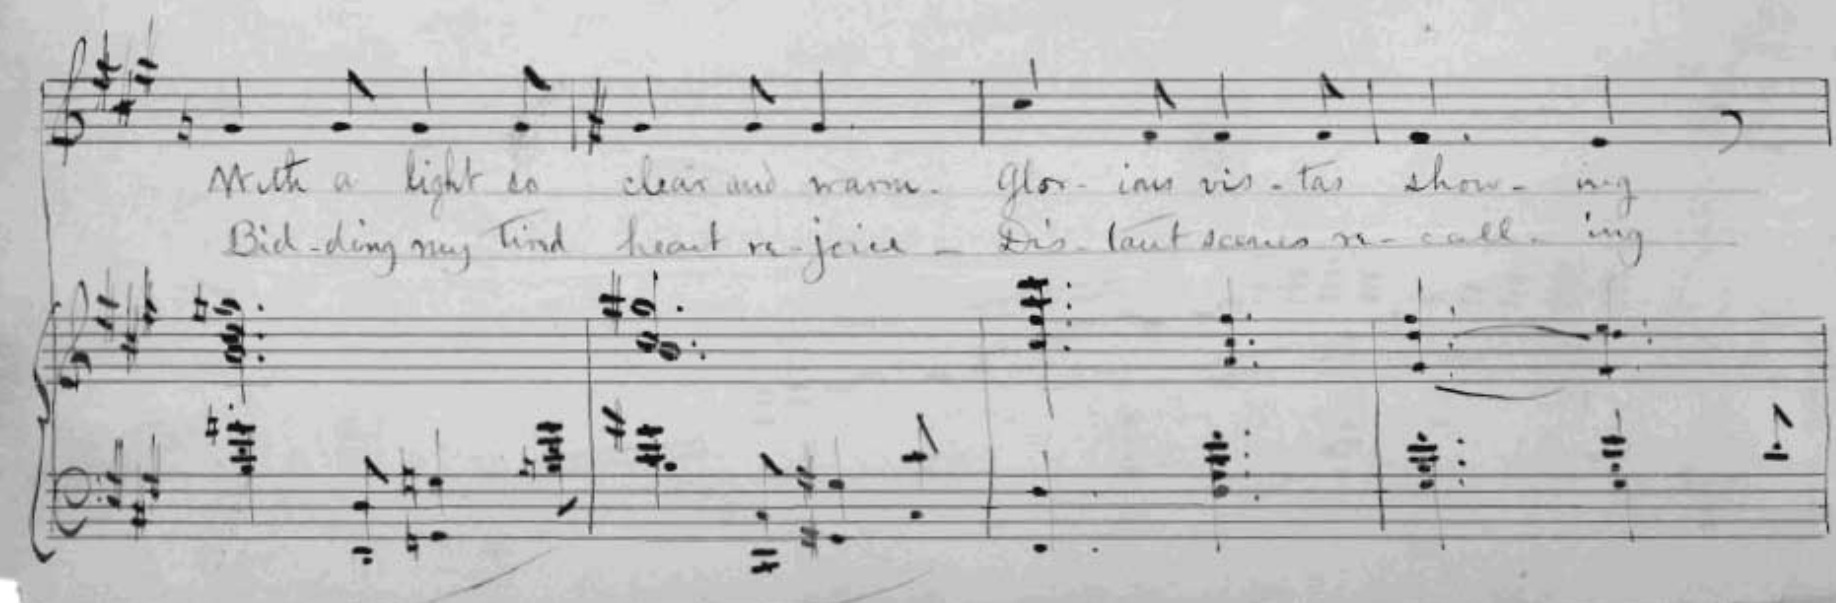 With a light so clear and warm. Glor- ious vis - tas show - ing
Bid-ding my tired heart re-joice - Dis- tant scenes re - call - ing